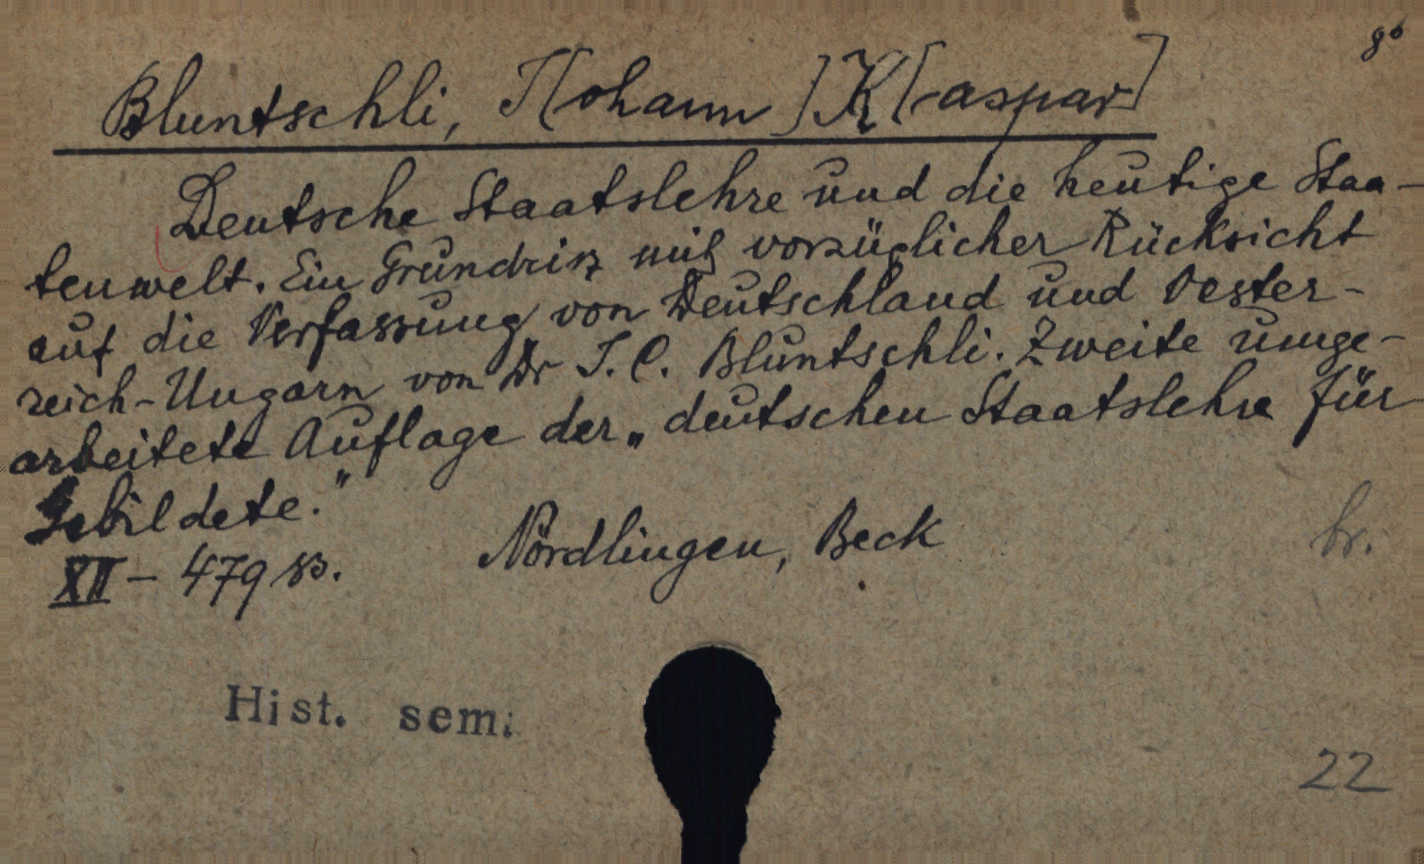 8°
Bluntschli, J[ohann] K[aspar]
Deutsche Staatslehre und die heutige Staa-
tenwelt. Ein Grundriß mit vorzüglicher Rücksicht
auf die Verfassung von Deutschland und Oester-
reich-Ungarn von Dr J. C. Bluntschli. Zweite umge-
arbeitete Auflage der „deutschen Staatslehre für
Gebildete."
XII - 479 S. Nördlingen, Beck
br.
Hist. sem.
22